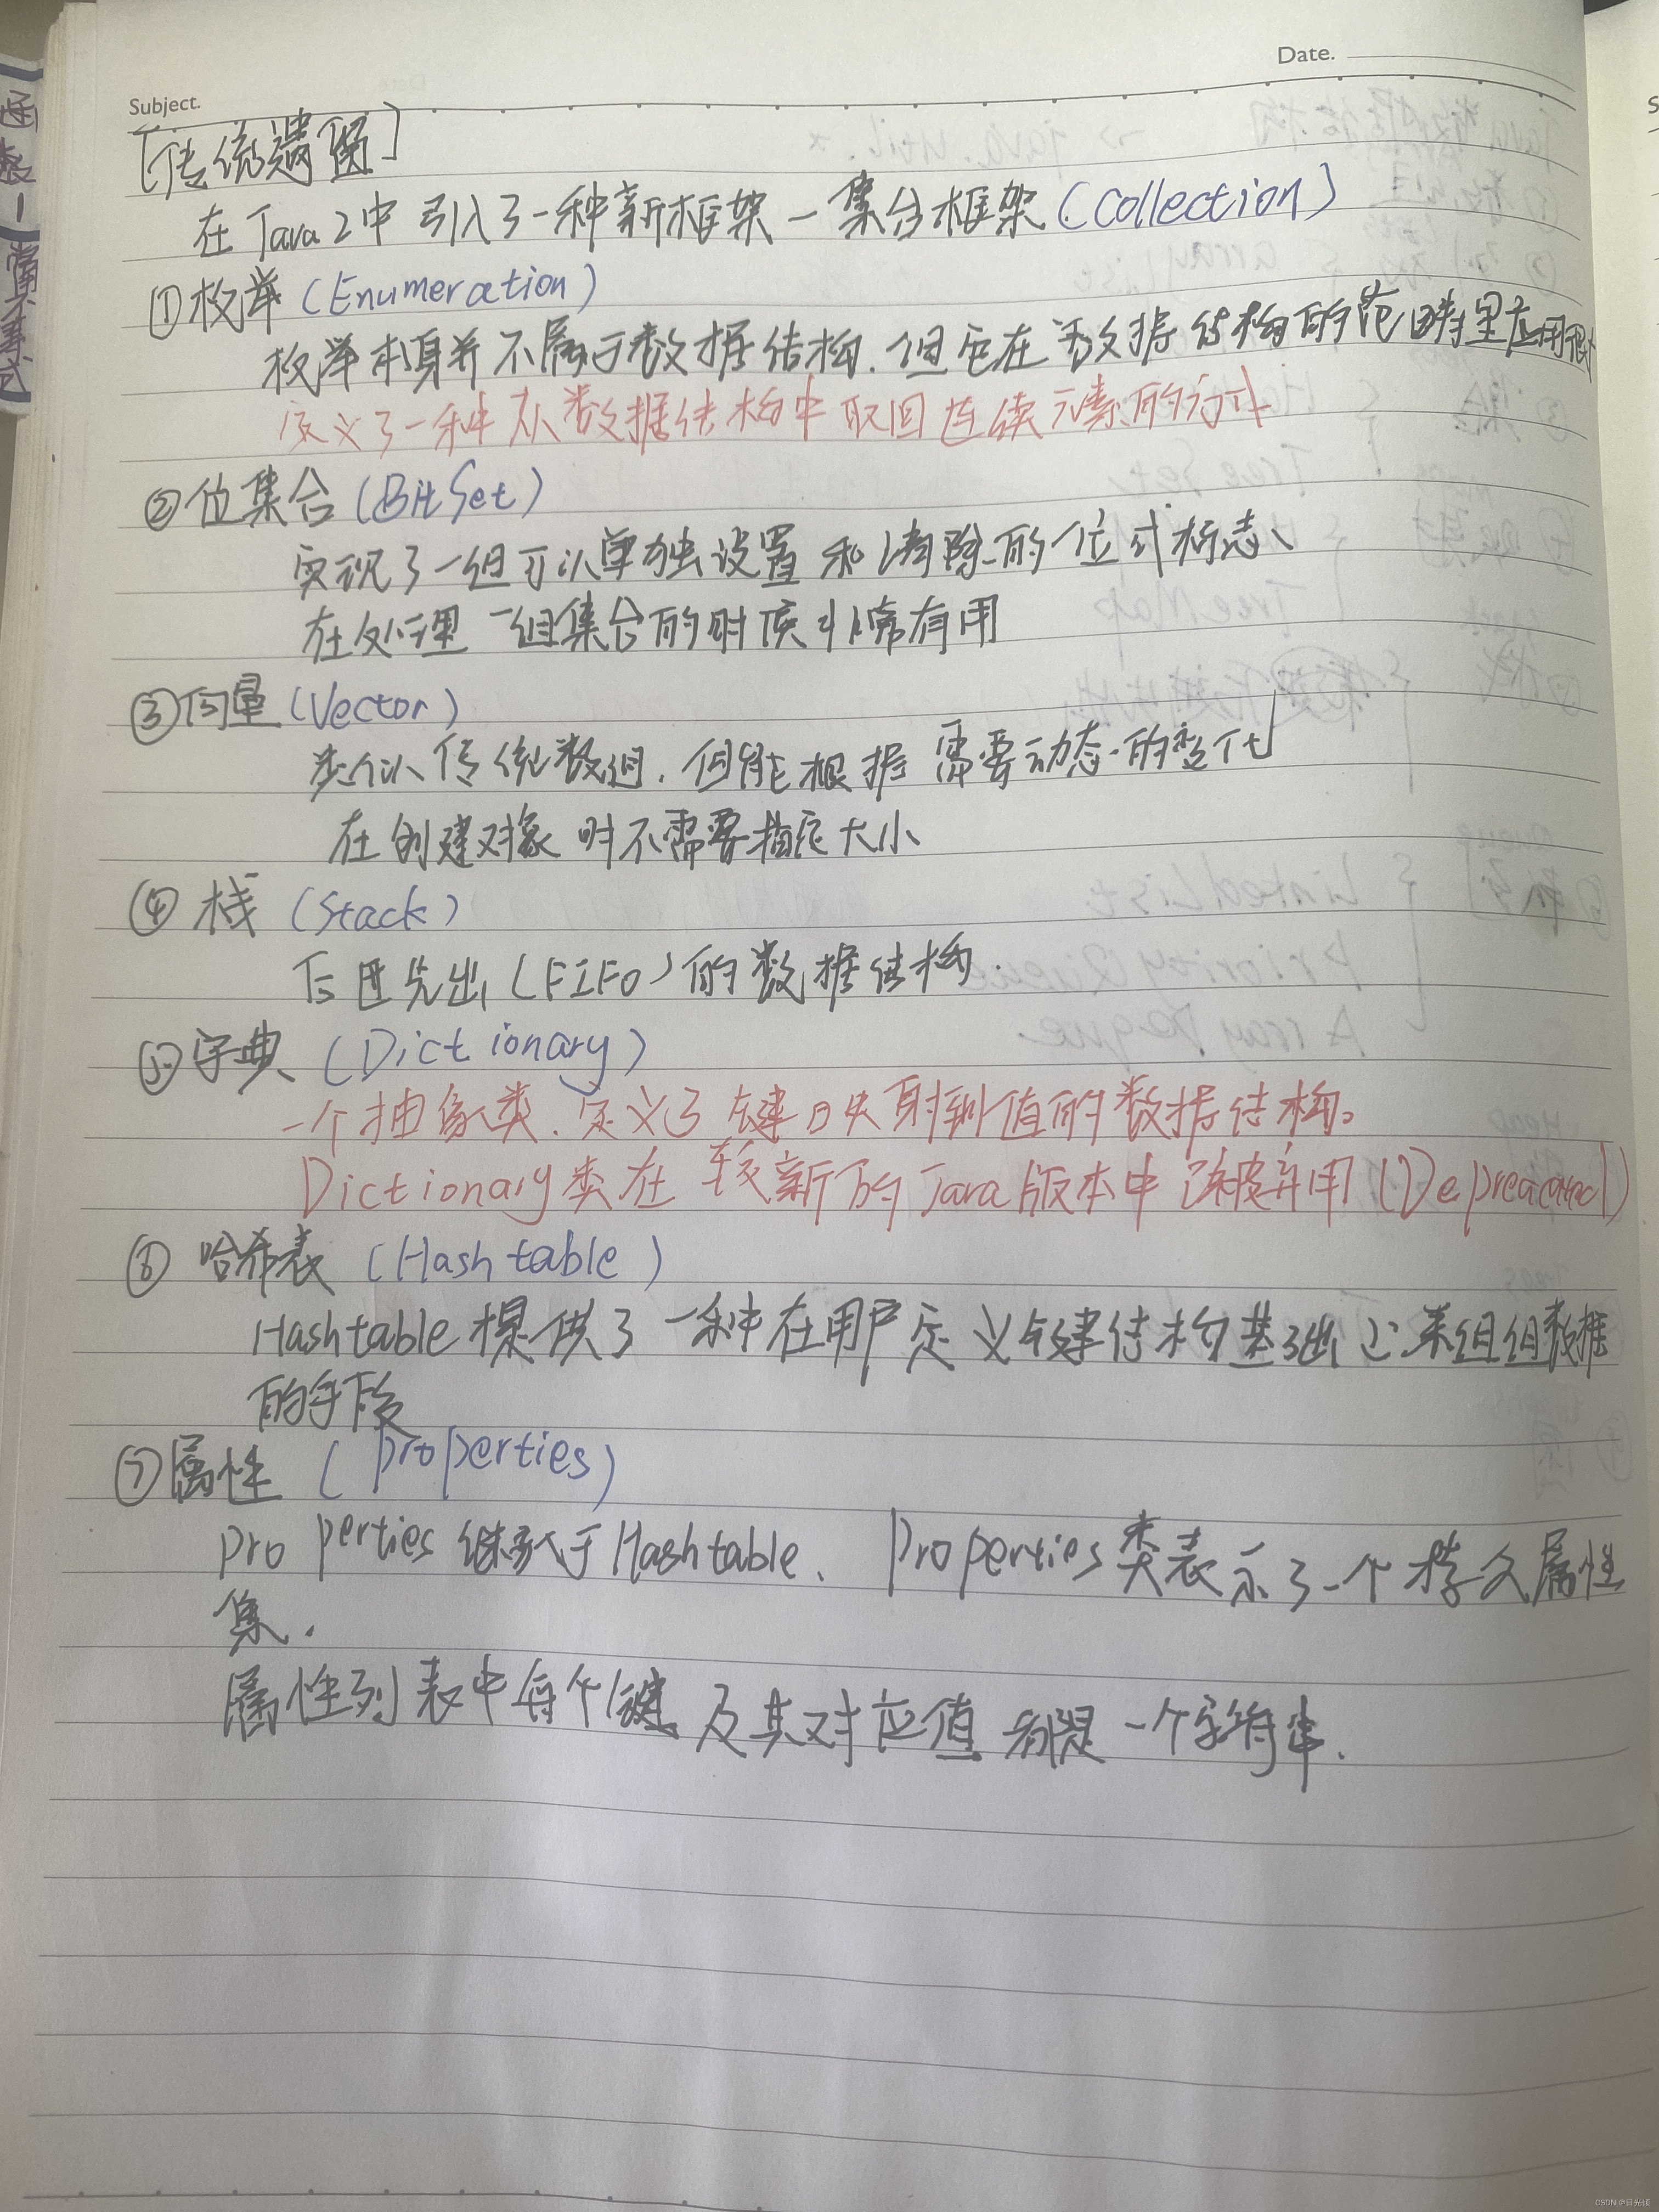 Date.
Subject.
[传统遗留]
在Java2中引入了一种新框架—集合框架(Collection)
①枚举(Enumeration)
枚举本身并不属于数据结构.但它在数据结构的范畴里应用很
定义了一种从数据结构中取回连续元素的方式
②位集合(BitSet)
实现了一组可以单独设置和清除的位或标志、
在处理一组集合的时候非常有用
③向量(Vector)
类似传统数组.但能根据需要动态的变化
在创建对象时不需要指定大小
④栈(Stack)
后进先出(FIFO)的数据结构.
⑤字典(Dictionary)
一个抽象类.定义了键映射到值的数据结构。
Dictionary类在较新的Java版本中已被弃用(Depreacated)
⑥哈希表(Hashtable)
Hashtable提供了一种在用户定义键结构基础上来组组数据
的手段
⑦属性(Properties)
Properties继承于Hashtable、Properties类表示了一个持久属性
集.
属性列表中每个键及其对应值都是一个字符串.
CSDN @日光倾